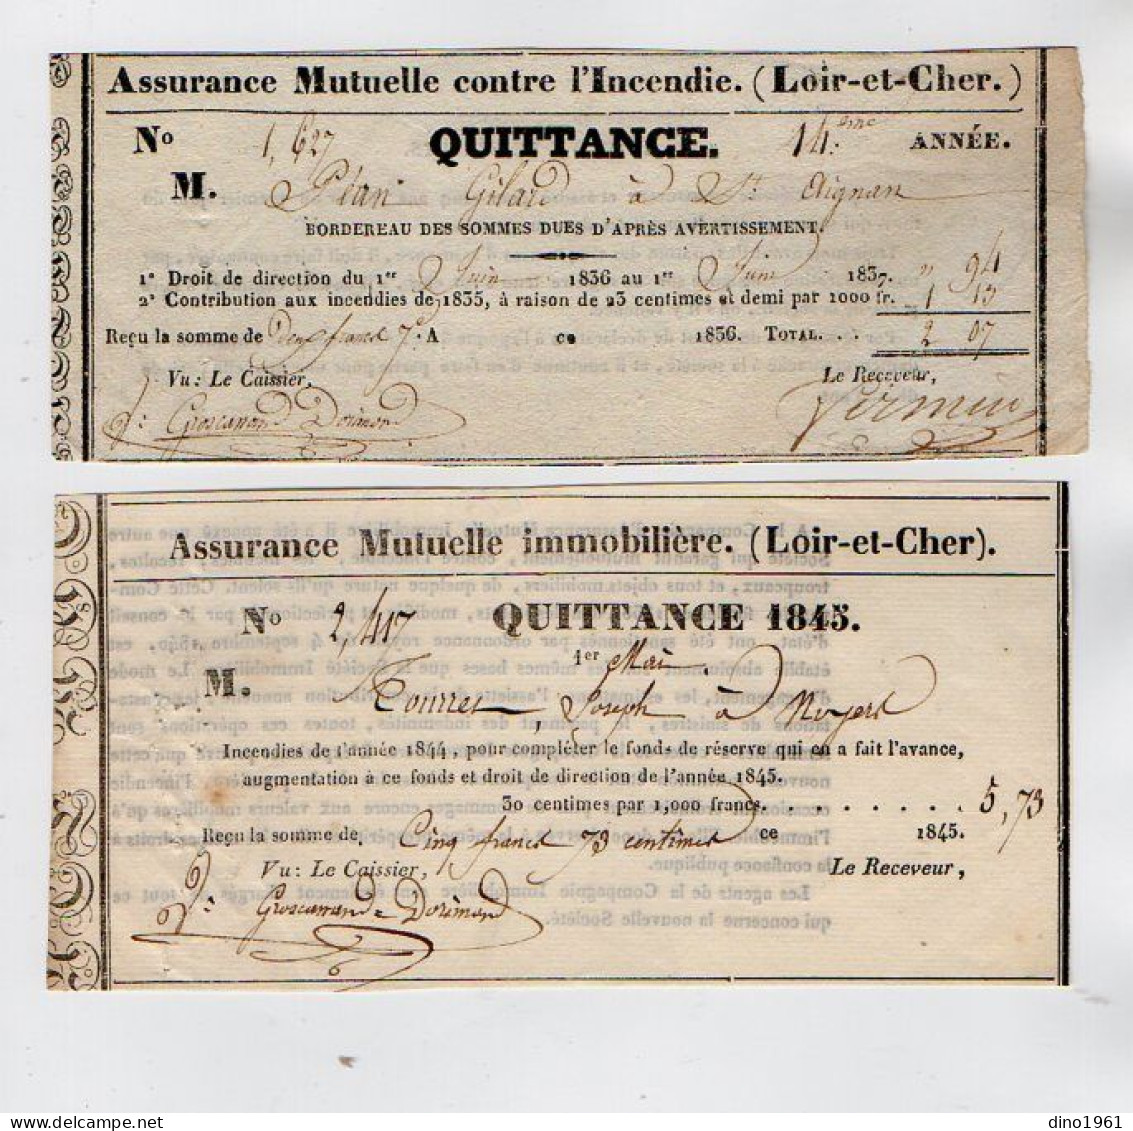 Assurance Mutuelle contre l'Incendie. (Loir-et-Cher.)
No 1,627 QUITTANCE. 14.eme ANNÉE.
M. Péan Gilard à St Aignan
BORDEREAU DES SOMMES DUES D'APRÈS AVERTISSEMENT.
1° Droit de direction du 1er Juin 1836 au 1er Juin 1837. " 94
2° Contribution aux incendies de 1835, à raison de 23 centimes et demi par 1000 fr. 1 13
Reçu la somme de deux francs 7c A ce 1836. TOTAL. . . 2 07
Vu : Le Caissier, Le Receveur,
Groscarrand Dorimond
Assurance Mutuelle immobilière. (Loir-et-Cher).
No 2,417 QUITTANCE 1845.
1er Mai
M. Joseph à Noyers
Incendies de l'année 1844, pour compléter le fonds de réserve qui en a fait l'avance,
augmentation à ce fonds et droit de direction de l'année 1845.
30 centimes par 1,000 francs. . . . . . . . . 5,73
Reçu la somme de Cinq francs 73 centimes ce 1845.
Vu : Le Caissier, Le Receveur,
Groscarrand=Dorimond
dino1961